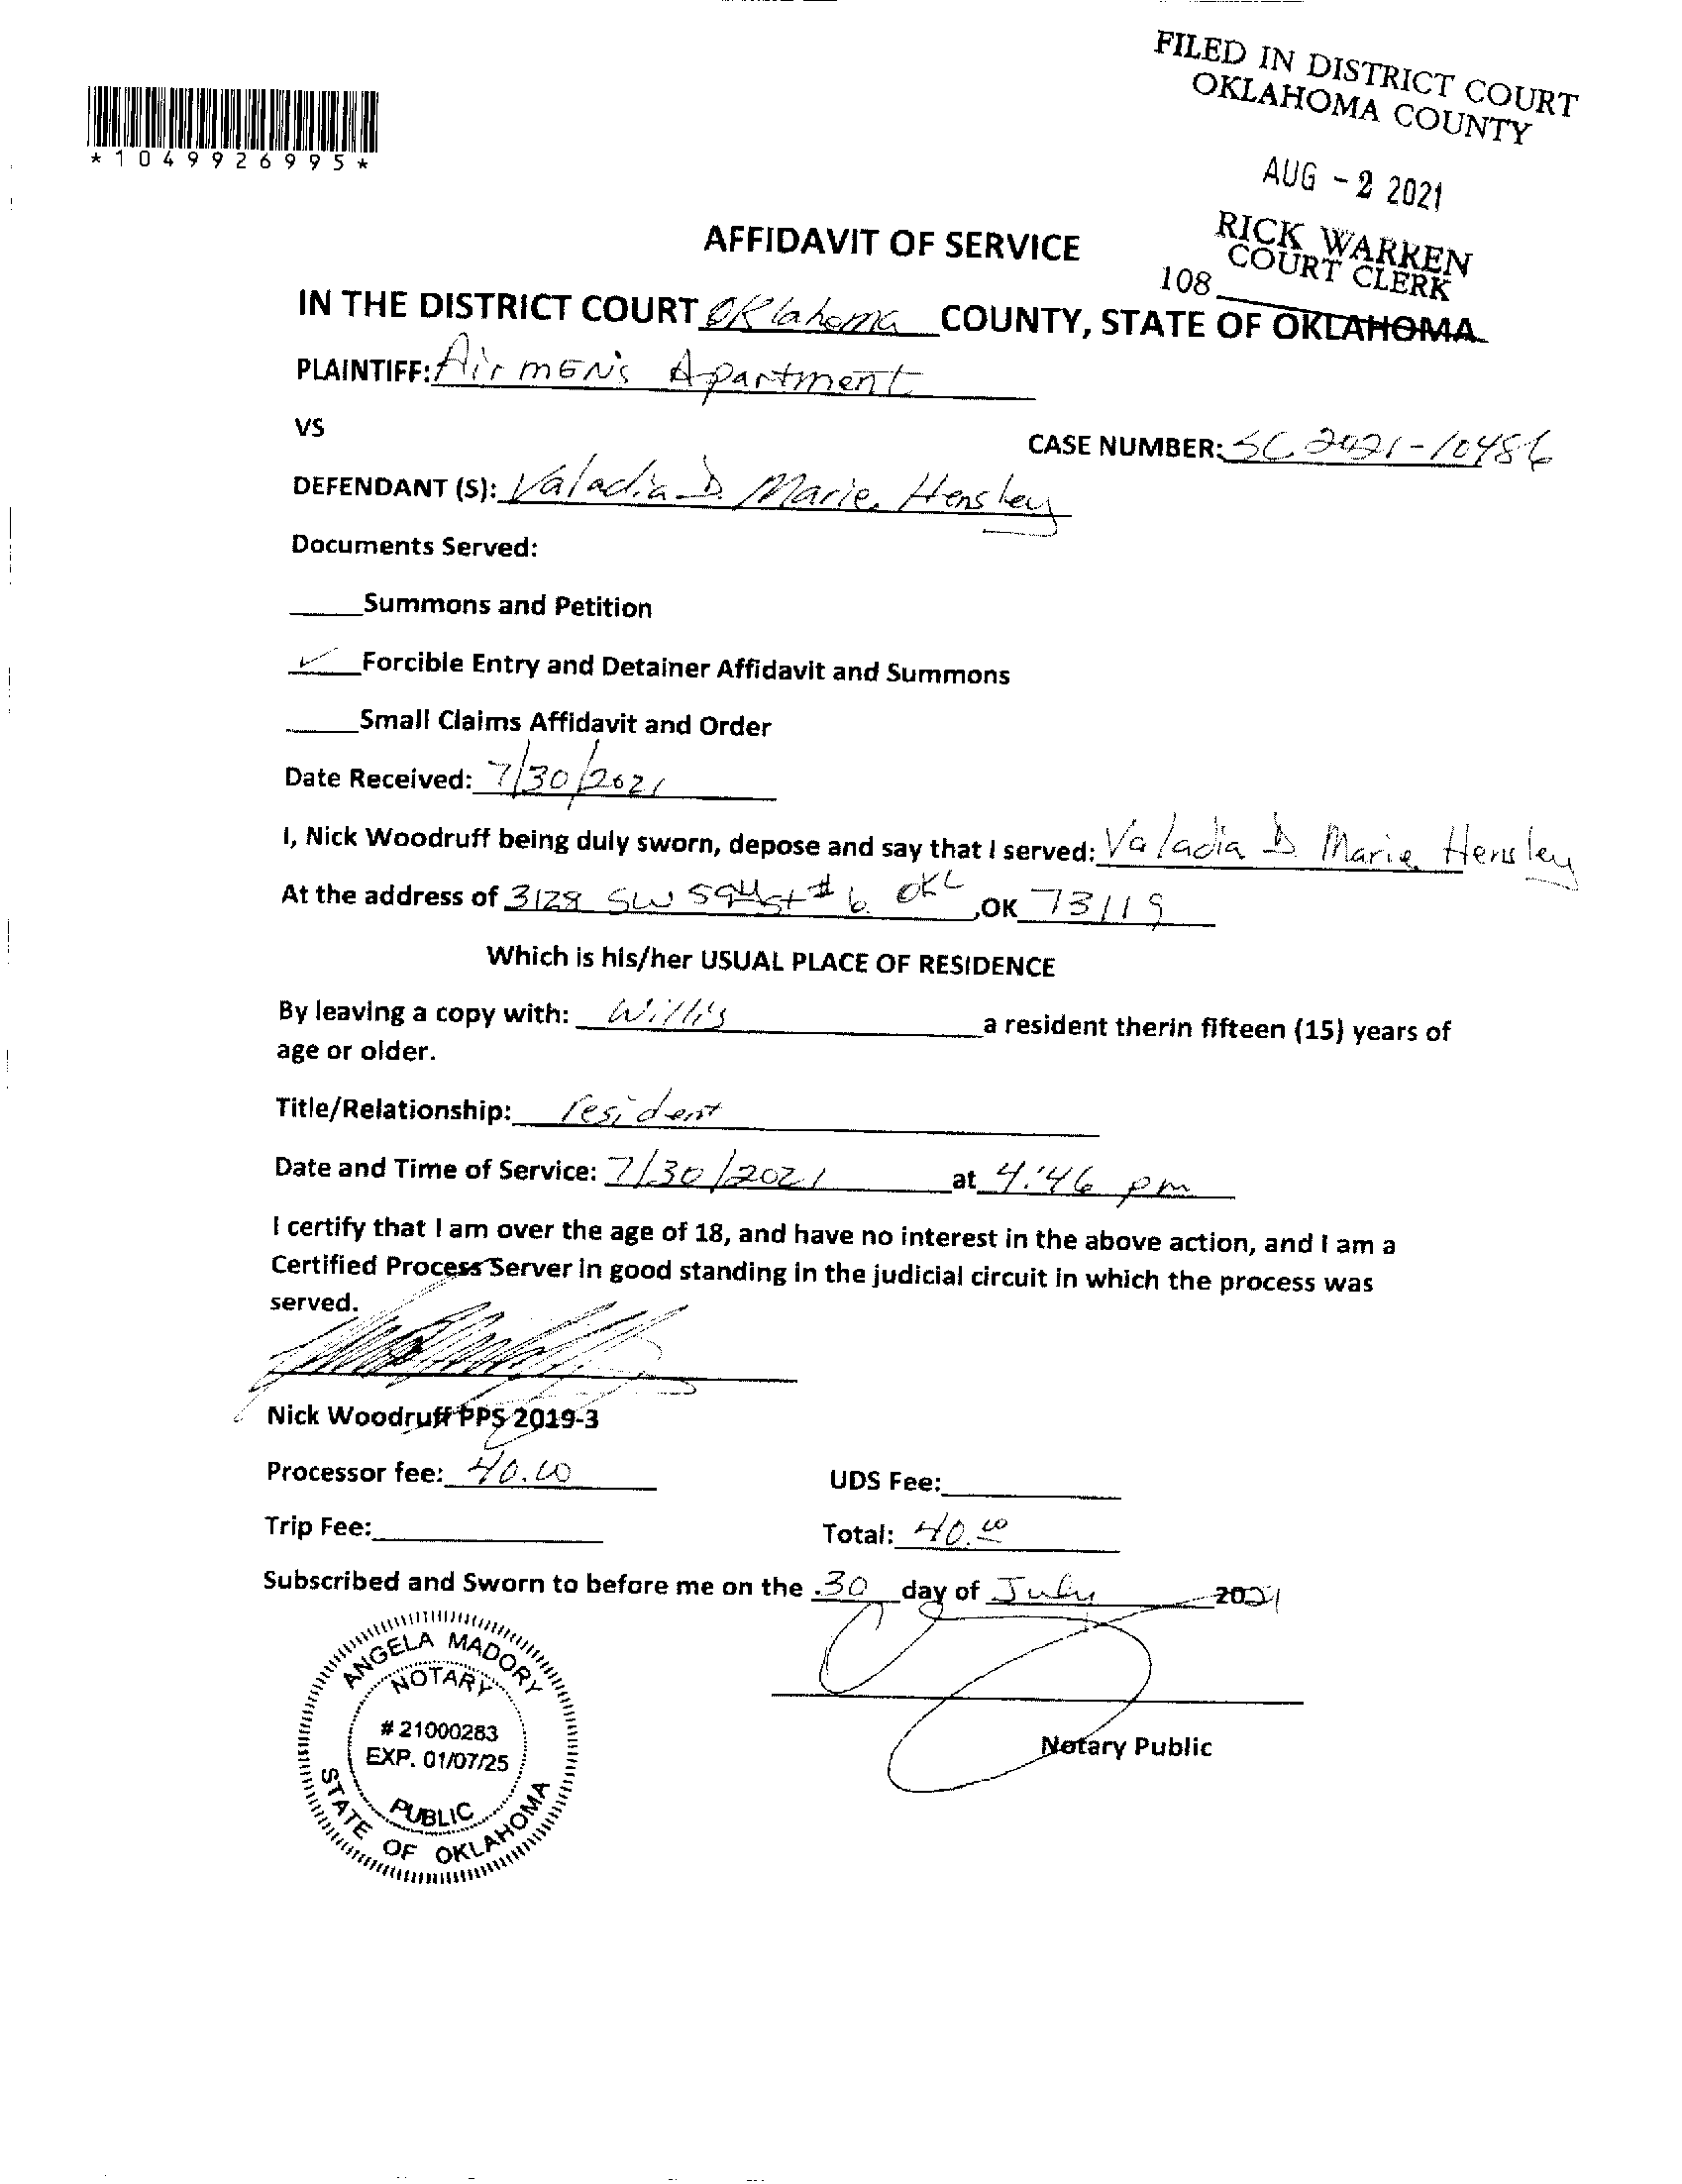 FILED IN DISTRICT COURT
OKLAHOMA COUNTY
*1049926995*
AUG - 2 2021
RICK WARREN
COURT CLERK
108
AFFIDAVIT OF SERVICE
IN THE DISTRICT COURT Oklahoma COUNTY, STATE OF OKLAHOMA
PLAINTIFF: AirmEN's Apartment
VS
CASE NUMBER: SC 2021-10486
DEFENDANT (S): Valadia D. Marie Hensley
Documents Served:
Summons and Petition
✓ Forcible Entry and Detainer Affidavit and Summons
Small Claims Affidavit and Order
Date Received: 7/30/2021
I, Nick Woodruff being duly sworn, depose and say that I served: Valadia D Marie Hensley
At the address of 3128 SW 59th St # 6. OKC ,OK 73119
Which is his/her USUAL PLACE OF RESIDENCE
By leaving a copy with: Willis a resident therin fifteen (15) years of
age or older.
Title/Relationship: resident
Date and Time of Service: 7/30/2021 at 4:46 pm
I certify that I am over the age of 18, and have no interest in the above action, and I am a
Certified Process Server in good standing in the judicial circuit in which the process was
served.
Nick Woodruff PPS 2019-3
Processor fee: 40.00 UDS Fee:
Trip Fee: Total: 40.00
Subscribed and Sworn to before me on the 30 day of July 2021
ANGELA MADORY
NOTARY
# 21000283
EXP. 01/07/25
PUBLIC
STATE OF OKLAHOMA
Notary Public